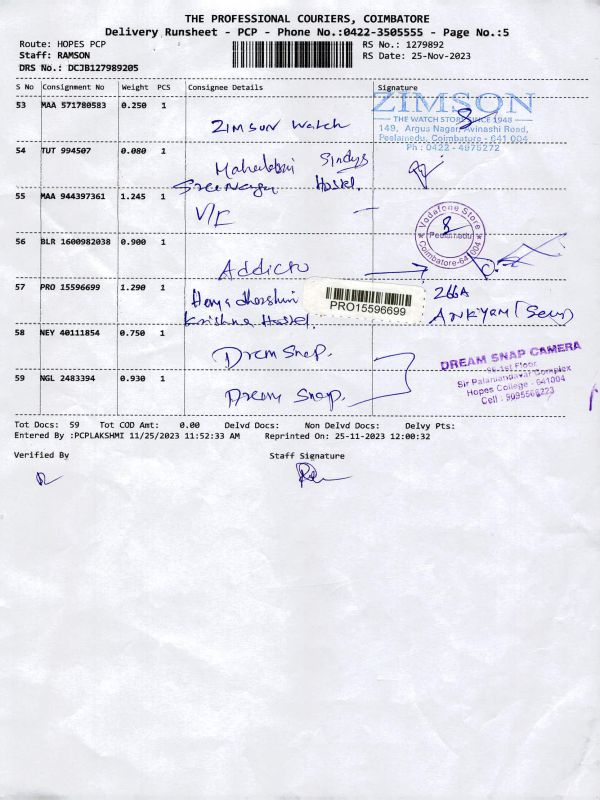 THE PROFESSIONAL COURIERS, COIMBATORE
Delivery Runsheet - PCP - Phone No.:0422-3505555 - Page No.:5
Route: HOPES PCP
RS No.: 1279892
Staff: RAMSON
RS Date: 25-Nov-2023
DRS No.: DCJB127989205
S No Consignment No Weight PCS Consignee Details Signature
53 MAA 571780583 0.250 1
ZIMSON
THE WATCH STORE SINCE 1948
149, Argus Nagar, Avinashi Road,
Peelamedu, Coimbatore - 641 004
Ph : 0422 - 4975272
Zimson Watch
54 TUT 994507 0.080 1
Sree Nagar Hostel.
55 MAA 944397361 1.245 1
V/E
Vodafone Store
Peelamedu
Coimbatore-641 004
56 BLR 1600982038 0.900 1
Addicto
57 PRO 15596699 1.290 1
Krishna Hostel.
PRO15596699
266A
58 NEY 40111854 0.750 1
Drem Snap.
DREAM SNAP CAMERA
1st Floor
Complex
Hopes College - 641004
Cell :
59 NGL 2483394 0.930 1
Dream Snap.
Tot Docs: 59 Tot COD Amt: 0.00 Delvd Docs: Non Delvd Docs: Delvy Pts:
Entered By :PCPLAKSHMI 11/25/2023 11:52:33 AM Reprinted On: 25-11-2023 12:00:32
Verified By Staff Signature